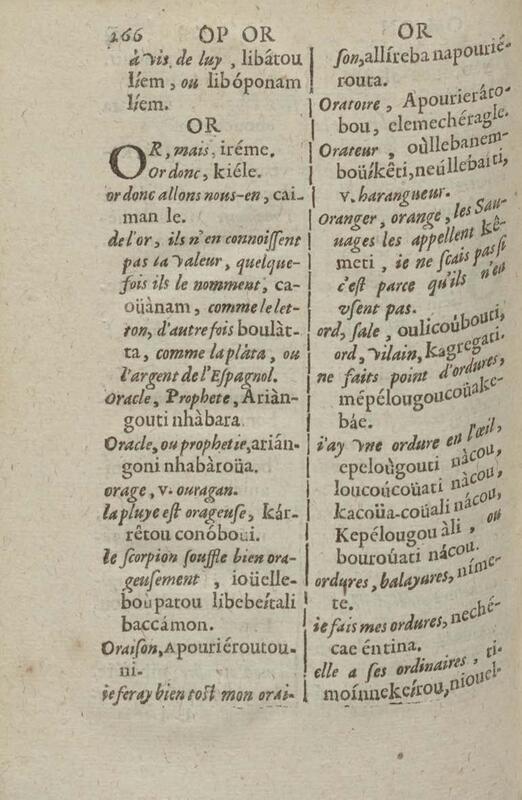 266 OP OR
à vis de luy, libátou
líem, ou libóponam
líem.
OR
OR, mais, iréme.
Or donc, kiéle.
or donc allons nous-en, cai-
man le.
de l'or, ils n'en connoissent
pas la valeur, quelque-
fois ils le nomment, ca-
oüànam, comme le let-
ton, d'autrefois boulàt-
ta, comme la plàta, ou
l'argent de l'Espagnol.
Oracle, Prophete, Ariàn-
gouti nhàbara.
Oracle, ou prophetie, arián-
goni nhabàroüa.
orage, v. ouragan.
la pluye est orageuse, kár-
rêtou conóboui.
le scorpion souffle bien ora-
geusement, ioüelle-
boupatou libebeítali
baccámon.
Oraison, Apouriéroutou-
ni.
ie feray bien tost mon orai-
OR
son, allíreba napourié-
routa.
Oratoire, Apourieráto-
bou, elemechéragle.
Orateur, oùllebanem-
boüíkêti, neúllebaiti,
v. harangueur.
Oranger, orange, les Sau-
uages les appellent kê-
meti, ie ne sçais pas si
c'est parce qu'ils n'en
vsent pas.
ord, sale, oulicoúbouti,
ord, vilain, kagregati.
ne faits point d'ordures,
mépélougoucoüake-
báe.
i'ay vne ordure en l'œil,
epeloùgouti nàcou,
loucoúcoüati nácou,
kacoüa-coüali nácou,
Kepélougou àli, ou
bouroúati nácou.
ordures, balayures, níme-
te.
ie fais mes ordures, neché-
cae éntina.
elle a ses ordinaires, ti-
moínnekeírou, niouel-